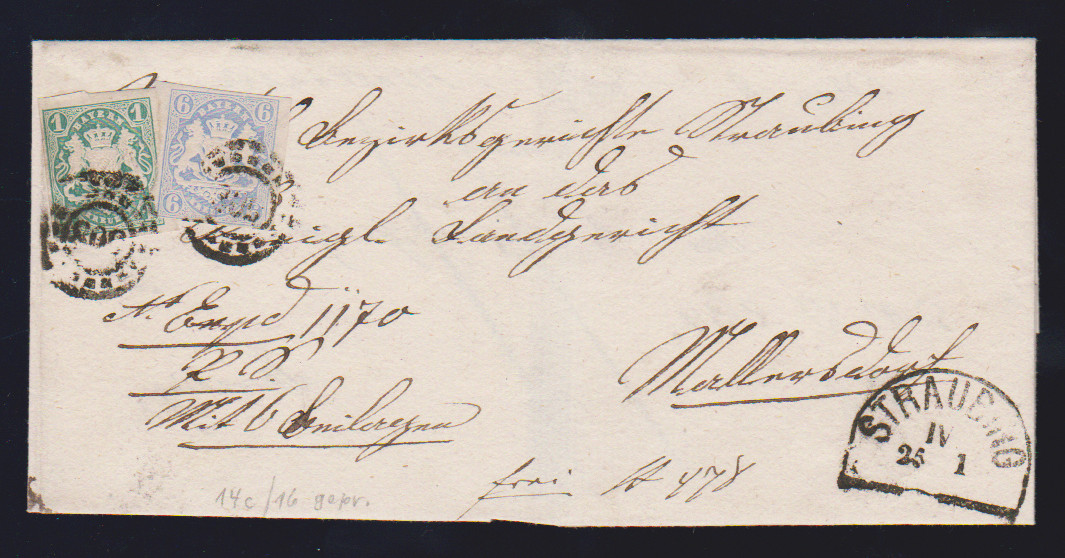 1 BAYERN 1
6 BAYERN 6
6
Bezirksgerichte Straubing
an das
Königl. Landgericht
No Exped 1170
R. S.
Mit 6 Beilagen
Mallersdorf
STRAUBING
IV
25 1
frei
478
14c/16 gepr.